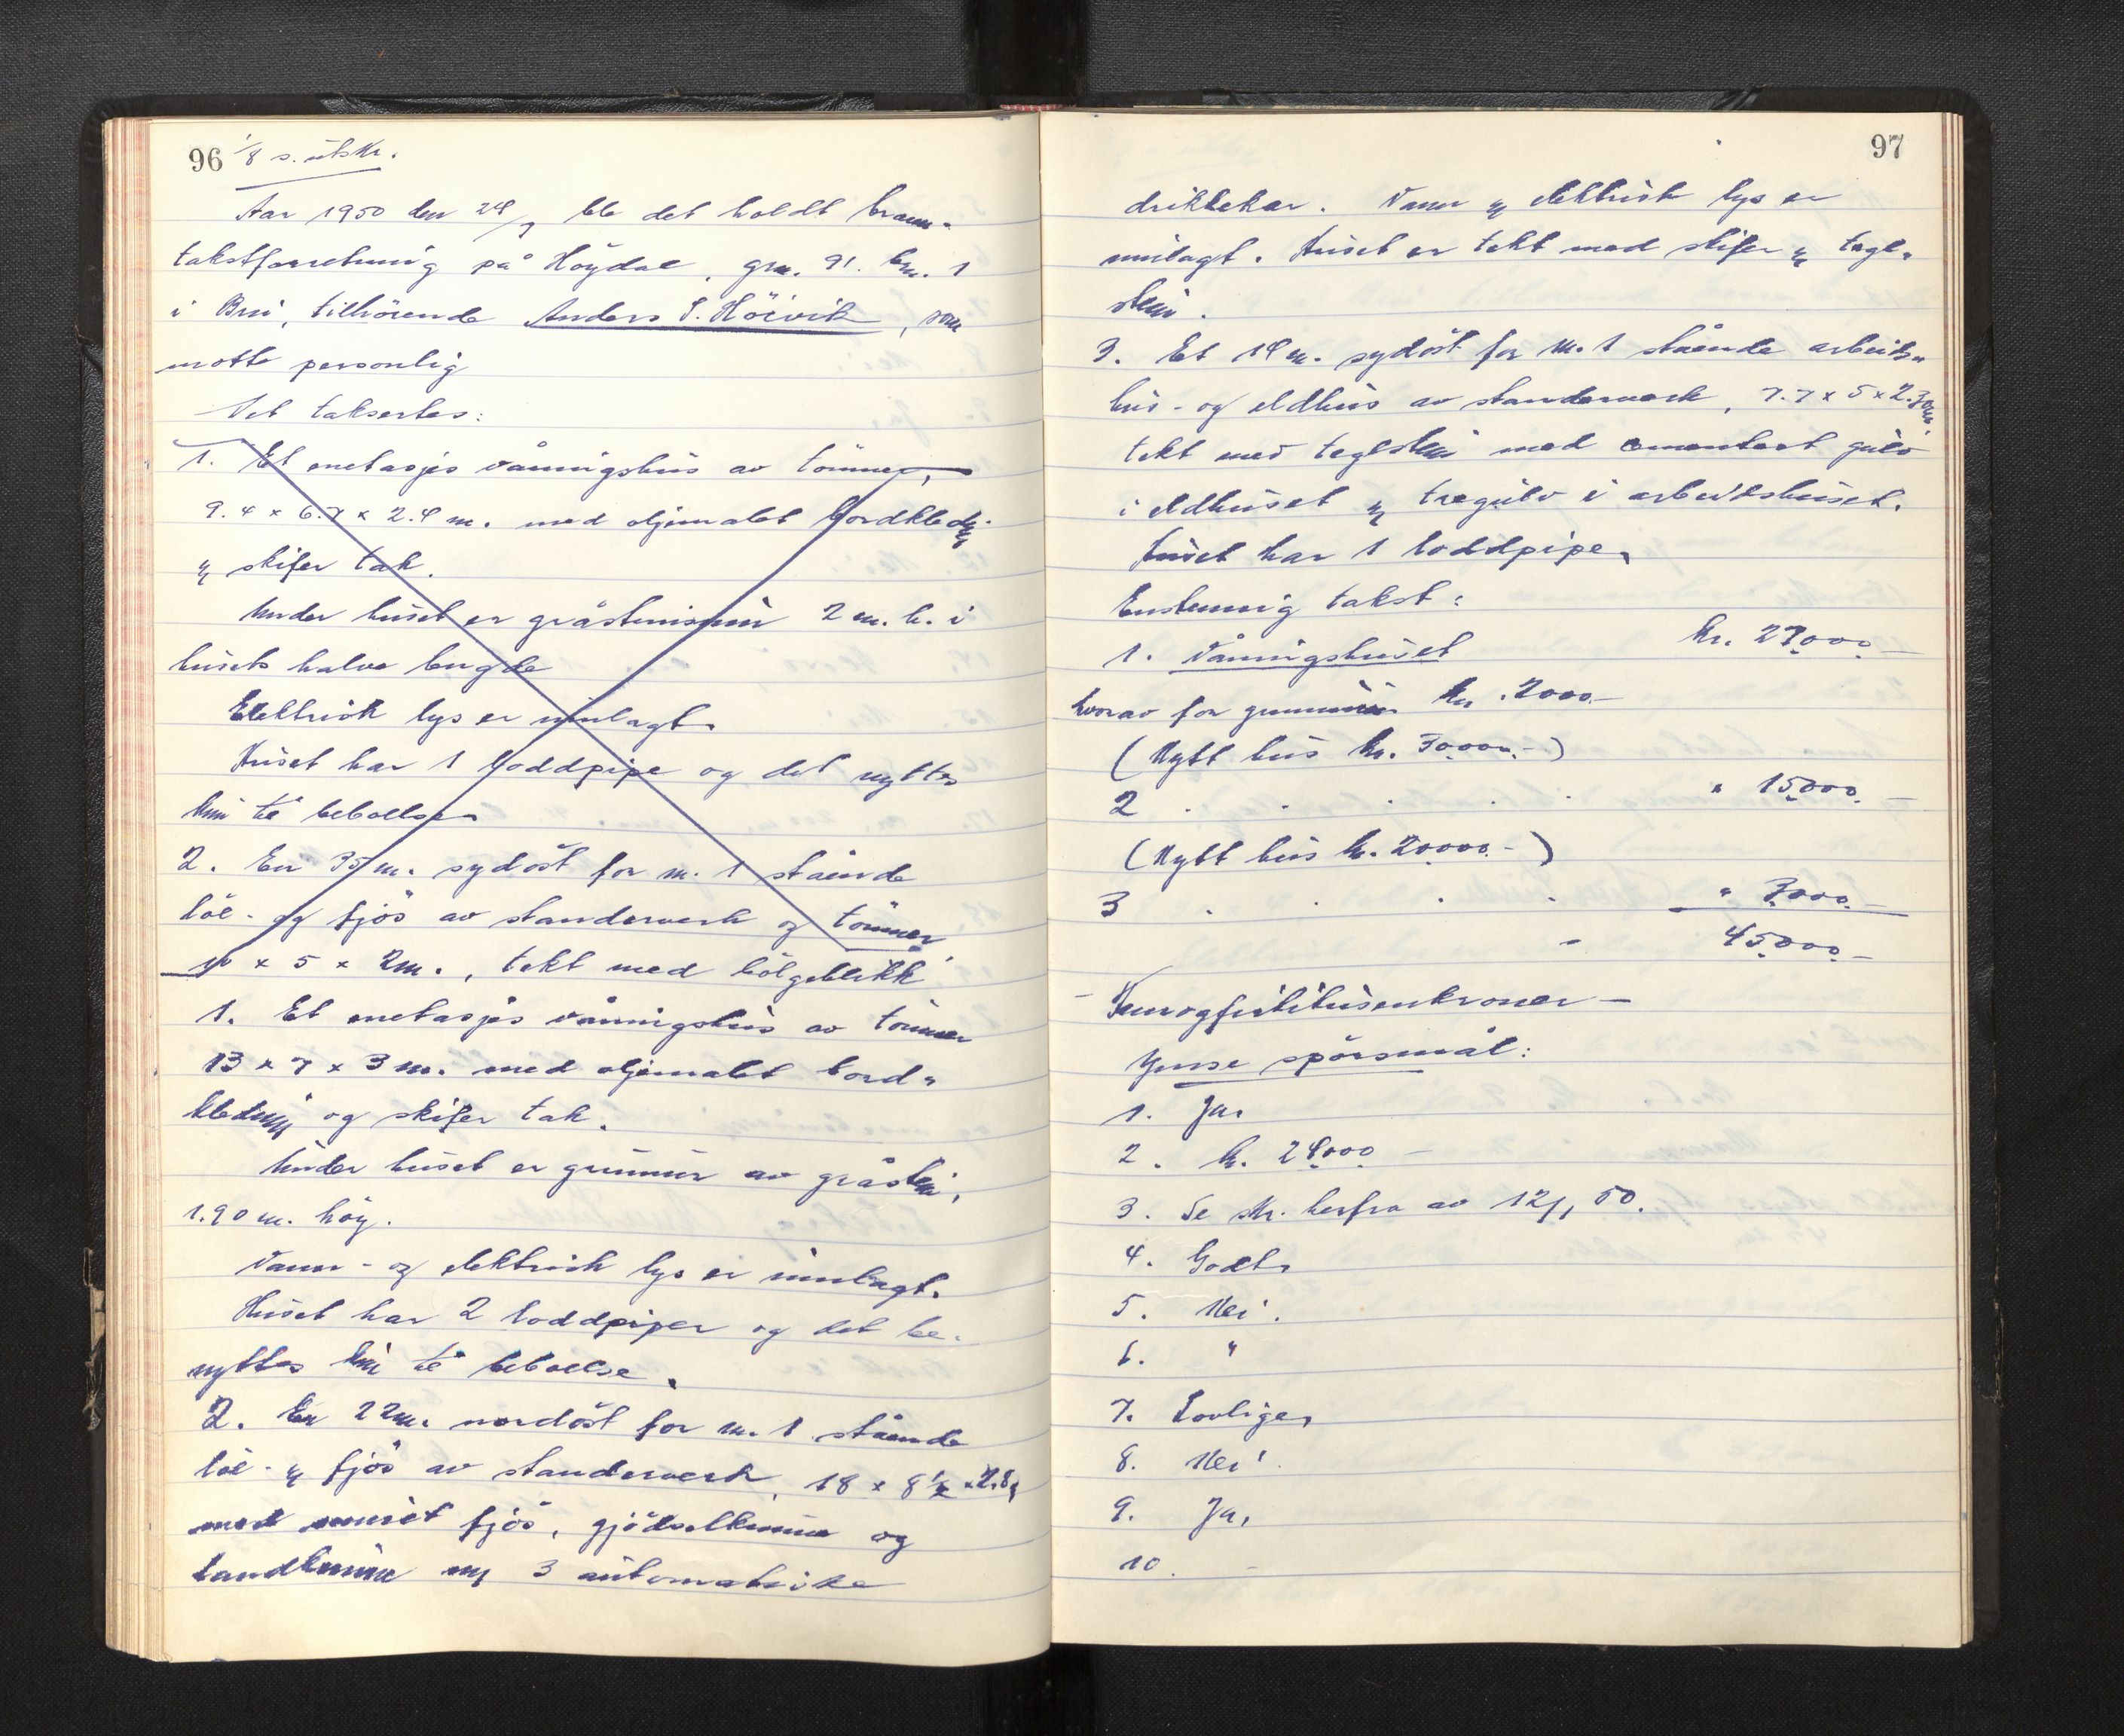 96 1/8 s. utskr.
Aar 1950 den 24/7 ble det holdt brann-
takstforretning på Höydal, grn. 91. brn. 1
i Bru, tilhörende Anders S. Höivik, som
mötte personlig
Det takseres:
1. Et enetasjes våningshus av tömmer,
9.4 x 6.7 x 2.4 m. med oljemalet bordkledning
og skifer tak.
Under huset er gråstensmur 2 m. h. i
husets halve lengde
Elektrisk lys er innlagt.
Huset har 1 loddpipe og det nyttes
kun til beboelse
2. En 35 m. sydöst for nr. 1 stående
löe- og fjös av standerverk og tömmer
10 x 5 x 2 m., tekt med bölgeblikk
1. Et enetasjes våningshus av tömmer
13 x 7 x 3 m. med oljemalet bord-
kledning og skifer tak.
Under huset er grunmur av gråsten,
1.90 m. höy.
Vann- og elektrisk lys er innlagt.
Huset har 2 loddpiper og det be-
nyttes kun til beboelse.
2. En 22 m. nordöst for nr. 1 stående
löe- og fjös av standerverk, 18 x 8 1/2 x 2.8,
med muret fjös, gjödselkum og
landkum og 3 automatiske
97
drikkekar. Vann og elektrisk lys er
innlagt. Huset er tekt med skifer og tegl-
sten.
3. Et 14 m. sydöst for nr. 1 stående arbeids-
hus- og eldhus av standerverk, 7.7 x 5 x 2.30 m
tekt med teglsten med cementert gulv
i eldhuset og tregulv i arbeidshuset.
Huset har 1 loddpipe.
Enstemmig takst:
1. Våningshuset kr. 27.000.-
hvorav for grunmur kr. 2000.-
(Nytt hus kr. 30.000.-)
2 . . . . . " 15.000.-
(Nytt hus kr. 20.000.-)
3 . . . . " 3.000.-
- 45.000.-
- Femogförtitusenkroner -
Ymse spörsmål:
1. Ja.
2. kr. 24.000.-
3. Se skr. herfra av 12/1 50.
4. Godt.
5. Nei.
6. "
7. Lovlige.
8. Nei.
9. Ja.
10. -